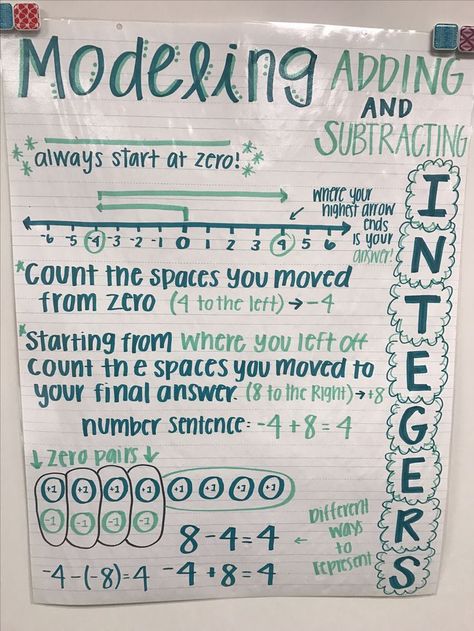 Modeling
ADDING
AND
SUBTRACTING
INTEGERS
always start at zero!
where your
highest arrow
ends
is your
answer!
-6 -5 -4 -3 -2 -1 0 1 2 3 4 5 6
*Count the spaces you moved
from zero (4 to the left) → -4
*Starting from where you left off
count the spaces you moved to
your final answer. (8 to the Right) → +8
number sentence: -4 + 8 = 4
↓ Zero pairs ↓
+1 +1 +1 +1 +1 +1 +1 +1
-1 -1 -1 -1
8 - 4 = 4
← Different
ways
to
represent
-4 - (-8) = 4 -4 + 8 = 4